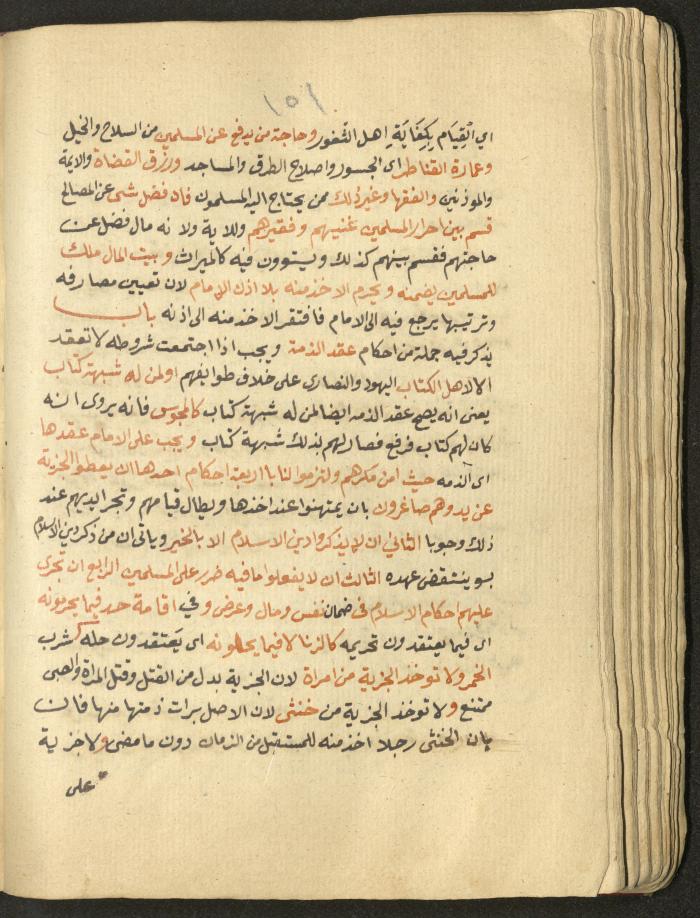 ١٥١
اي الْقِيَام بِكِفَايَةِ اهل الثغور وحاجة من يدفع عن المسلمين من السلاح والخيل
وعمارة القناطر اى الجسور واصلاح الطرق والمساجد ورزق القضاة والايمة
والموذنين والفقها وغير ذلك ممن يحتاج اليه المسلمون فان فضل شى عن المصالح
قسم بين احرار المسلمين غنيهم وفقيرهم وللاية ولانه مال فضل عن
حاجتهم فقسم بينهم كذلك ويستوون فيه كالميراث وبيت المال ملك
للمسلمين يضمنه ويحرم الاخذ منه بلا اذن الامام لان تعيين مصارفه
وترتيبها يرجع فيه الى الامام فافتقر الاخذ منه الى اذنه باب
يذكر فيه جملة من احكام عقد الذمة ويجب اذا اجتمعت شروطه لا تعقد
الا لاهل الكتاب اليهود والنصارى على خلاف طوايفهم او لمن له شبهة كتاب
يعنى انه يصح عقد الذمه ايضا لمن له شبهة كتاب كالمجوس فانه يروى انه
كان لهم كتاب فرفع فصار لهم بذلك شبهة كتاب ويجب على الامام عقدها
اى الذمه حيث امن مكرهم والتزموا لنا باربعة احكام احدها ان يعطوا الجزية
عن يد وهم صاغرون بان يمتهنوا عند اخذها ويطال قيامهم وتجر ايديهم عند
ذلك وجوبا الثانى ان لا يذكروا دين الاسلام الا بالخير وياتى ان من ذكر دين الاسلام
بسو ينتقض عهده الثالث ان لا يفعلوا ما فيه ضرر على المسلمين الرابع ان تجرى
عليهم احكام الاسلام فى ضمان نفس ومال وعرض وفي اقامة حد فيما يحرمونه
اى فيما يعتقدون تحريمه كالزنا لا فيما يحلونه اى يعتقدون حله كشرب
الخمر ولا توخذ الجزية من امراة لان الجزية بدل من القتل وقتل المراة والصبى
ممتنع ولا توخذ الجزية من خنثى لان الاصل برات ذمتها منها فان
بان الخنثى رجلا اخذ منه للمستقبل من الزمان دون ما مضى ولا جزية
على